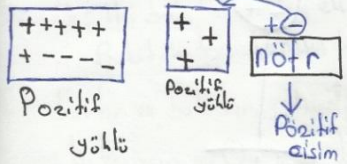 +++++
+----
Pozitif
yüklü
+
+
+
pozitif
yüklü
+ -
nötr
Pozitif
cisim